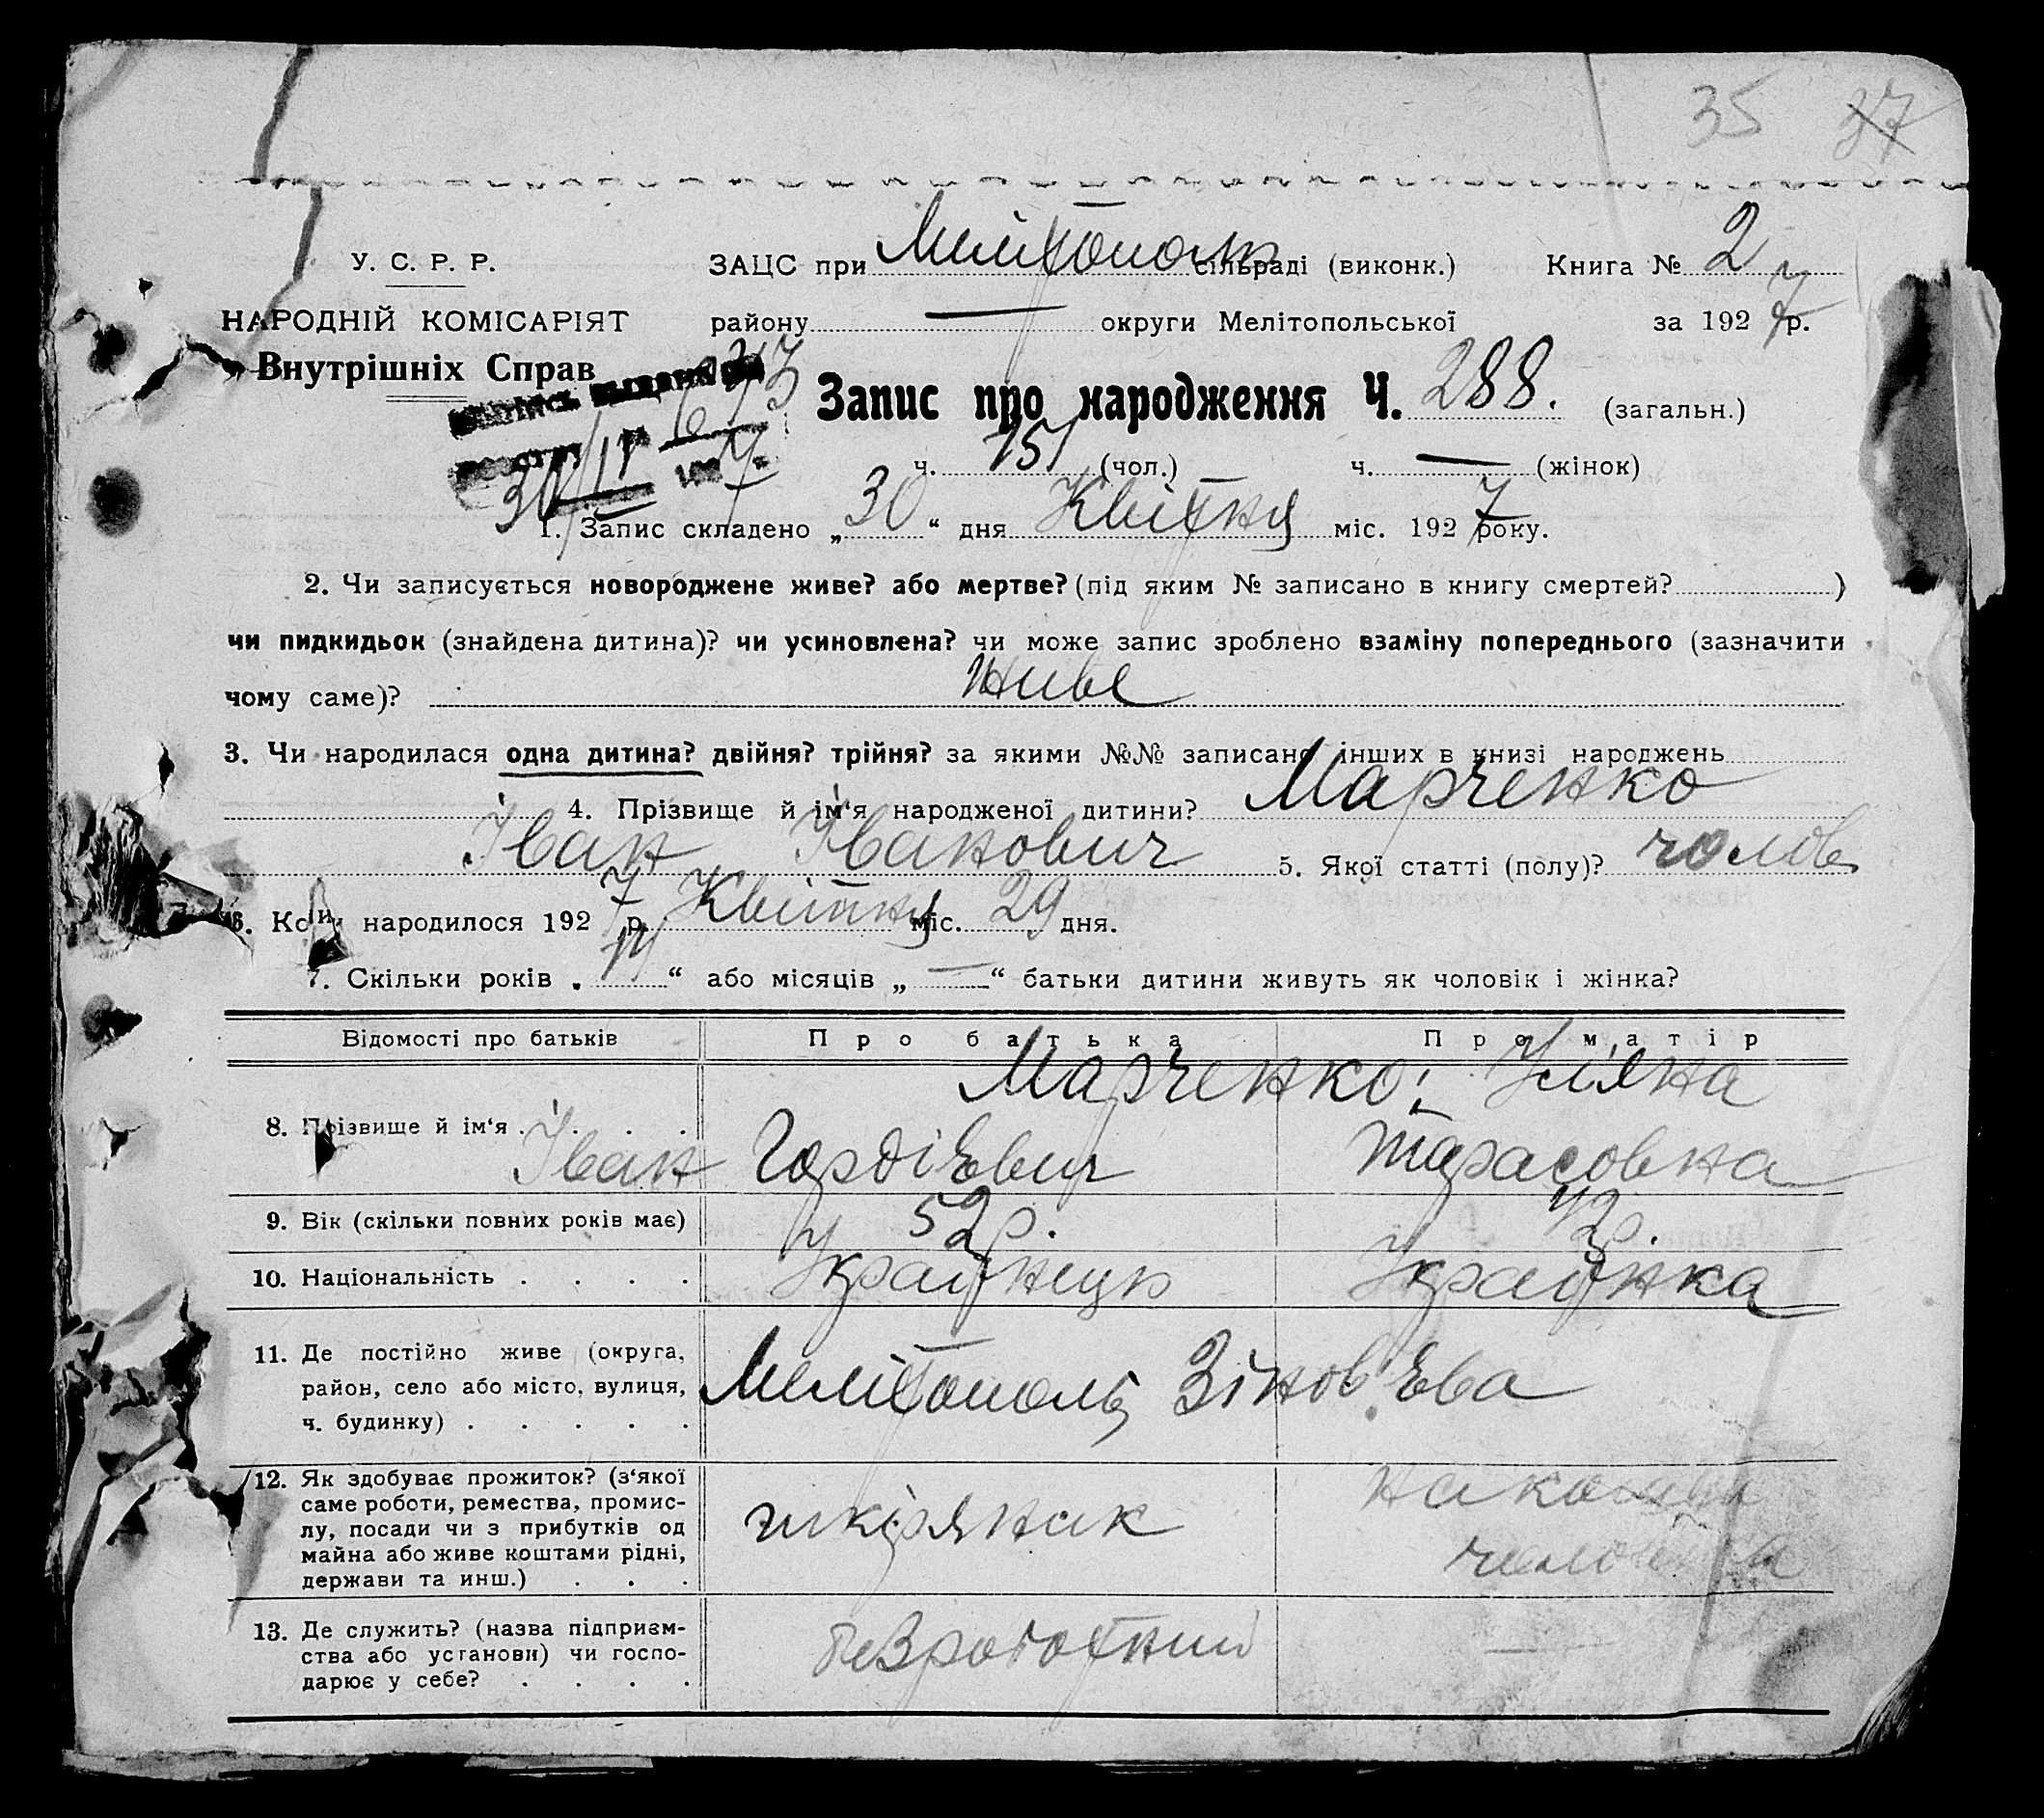 35 37
У. С. Р. Р. ЗАЦС при Мелітополь сільраді (виконк.) Книга № 2
НАРОДНІЙ КОМІСАРІЯТ району — округи Мелітопольської за 1927 р.
Внутрішніх Справ
Запис про народження Ч. 288. (загальн.)
ч. 151 (чол.) ч. — (жінок)
30/IV 7
1. Запис складено „30“ дня Квітня міс. 1927 року.
2. Чи записується новороджене живе? або мертве? (під яким № записано в книгу смертей? )
чи пидкидьок (знайдена дитина)? чи усиновлена? чи може запис зроблено взаміну попереднього (зазначити
чому саме)? живе
3. Чи народилася одна дитина? двійня? трійня? за якими №№ записано інших в книзі народжень
4. Прізвище й ім‘я народженої дитини? Марченко
Іван Іванович 5. Якої статті (полу)? чолов
6. Коли народилося 1927 р. Квітня міс. 29 дня.
7. Скільки років „ “ або місяців „—“ батьки дитини живуть як чоловік і жінка?
Відомості про батьків Про батька Про матір
Марченко; Уляна
8. Прізвище й ім‘я . . . . Іван Гордієвич Тарасовна
9. Вік (скільки повних років має) 52 р. 42 р.
10. Національність . . . . Українець Українка
11. Де постійно живе (округа,
район, село або місто, вулиця,
ч. будинку) . . . . . Мелітополь Зінов'єва
12. Як здобуває прожиток? (з‘якої
саме роботи, ремества, промис-
лу, посади чи з прибутків од
майна або живе коштами рідні,
держави та инш.) . . . шкіряник на
чоловіка
13. Де служить? (назва підприєм-
ства або установи) чи госпо-
дарює у себе? . . . . безроботний —